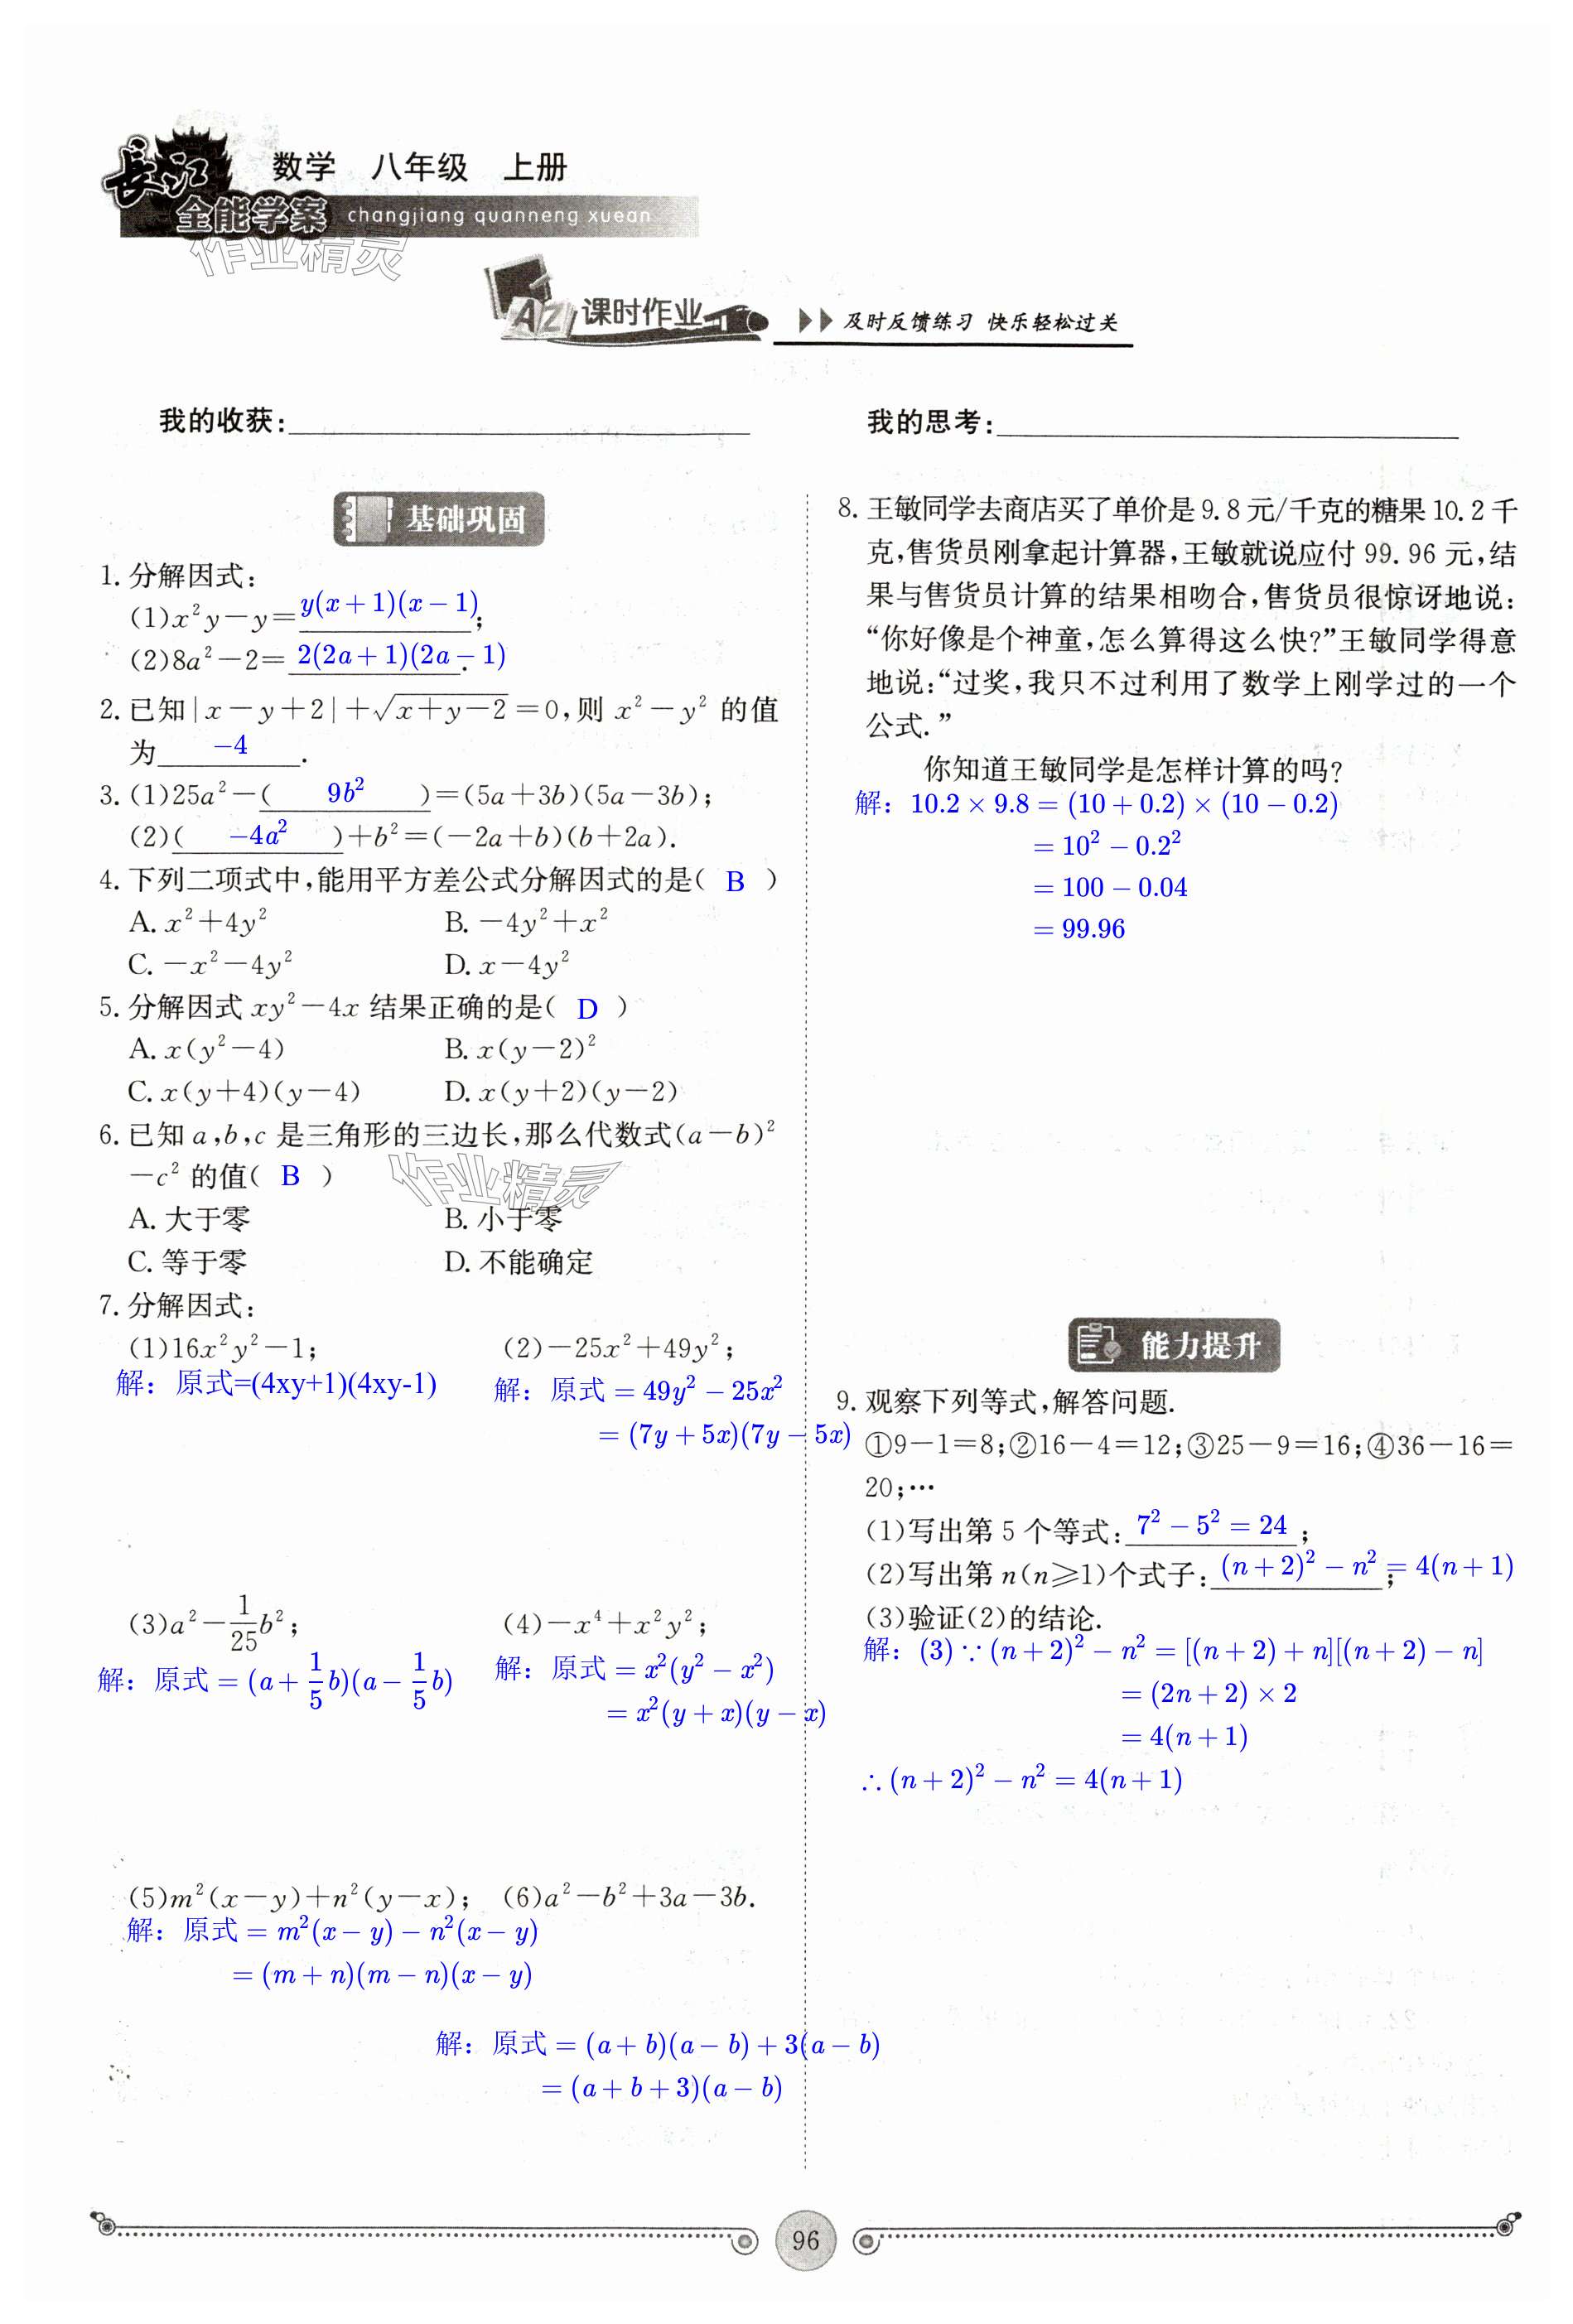 长江
数学 八年级 上册
全能学案 changjiang quanneng xuean
作业精灵
AZ 课时作业 及时反馈练习 快乐轻松过关
我的收获:
我的思考:
基础巩固
1. 分解因式:
(1)x²y-y= y(x+1)(x-1);
(2)8a²-2= 2(2a+1)(2a-1).
2. 已知|x-y+2|+√(x+y-2)=0,则 x²-y² 的值
为 -4 .
3. (1)25a²-( 9b² )=(5a+3b)(5a-3b);
(2)( -4a² )+b²=(-2a+b)(b+2a).
4. 下列二项式中,能用平方差公式分解因式的是( B )
A. x²+4y² B. -4y²+x²
C. -x²-4y² D. x-4y²
5. 分解因式 xy²-4x 结果正确的是( D )
A. x(y²-4) B. x(y-2)²
C. x(y+4)(y-4) D. x(y+2)(y-2)
6. 已知 a,b,c 是三角形的三边长,那么代数式(a-b)²
-c² 的值( B )
作业精灵
A. 大于零 B. 小于零
C. 等于零 D. 不能确定
7. 分解因式:
(1)16x²y²-1; (2)-25x²+49y²;
解：原式=(4xy+1)(4xy-1) 解：原式=49y²-25x²
=(7y+5x)(7y-5x)
(3)a²-1/25b²; (4)-x⁴+x²y²;
解：原式=(a+1/5b)(a-1/5b) 解：原式=x²(y²-x²)
=x²(y+x)(y-x)
(5)m²(x-y)+n²(y-x); (6)a²-b²+3a-3b.
解：原式=m²(x-y)-n²(x-y)
=(m+n)(m-n)(x-y)
解：原式=(a+b)(a-b)+3(a-b)
=(a+b+3)(a-b)
8. 王敏同学去商店买了单价是9.8元/千克的糖果10.2千
克,售货员刚拿起计算器,王敏就说应付 99.96 元,结
果与售货员计算的结果相吻合,售货员很惊讶地说:
“你好像是个神童,怎么算得这么快?”王敏同学得意
地说:“过奖,我只不过利用了数学上刚学过的一个
公式.”
你知道王敏同学是怎样计算的吗?
解：10.2×9.8=(10+0.2)×(10-0.2)
=10²-0.2²
=100-0.04
=99.96
能力提升
9. 观察下列等式,解答问题.
①9-1=8;②16-4=12;③25-9=16;④36-16=
20;…
(1)写出第 5 个等式: 7²-5²=24 ;
(2)写出第 n(n⩾1)个式子: (n+2)²-n²=4(n+1);
(3)验证(2)的结论.
解：(3)∵(n+2)²-n²=[(n+2)+n][(n+2)-n]
=(2n+2)×2
=4(n+1)
∴(n+2)²-n²=4(n+1)
96